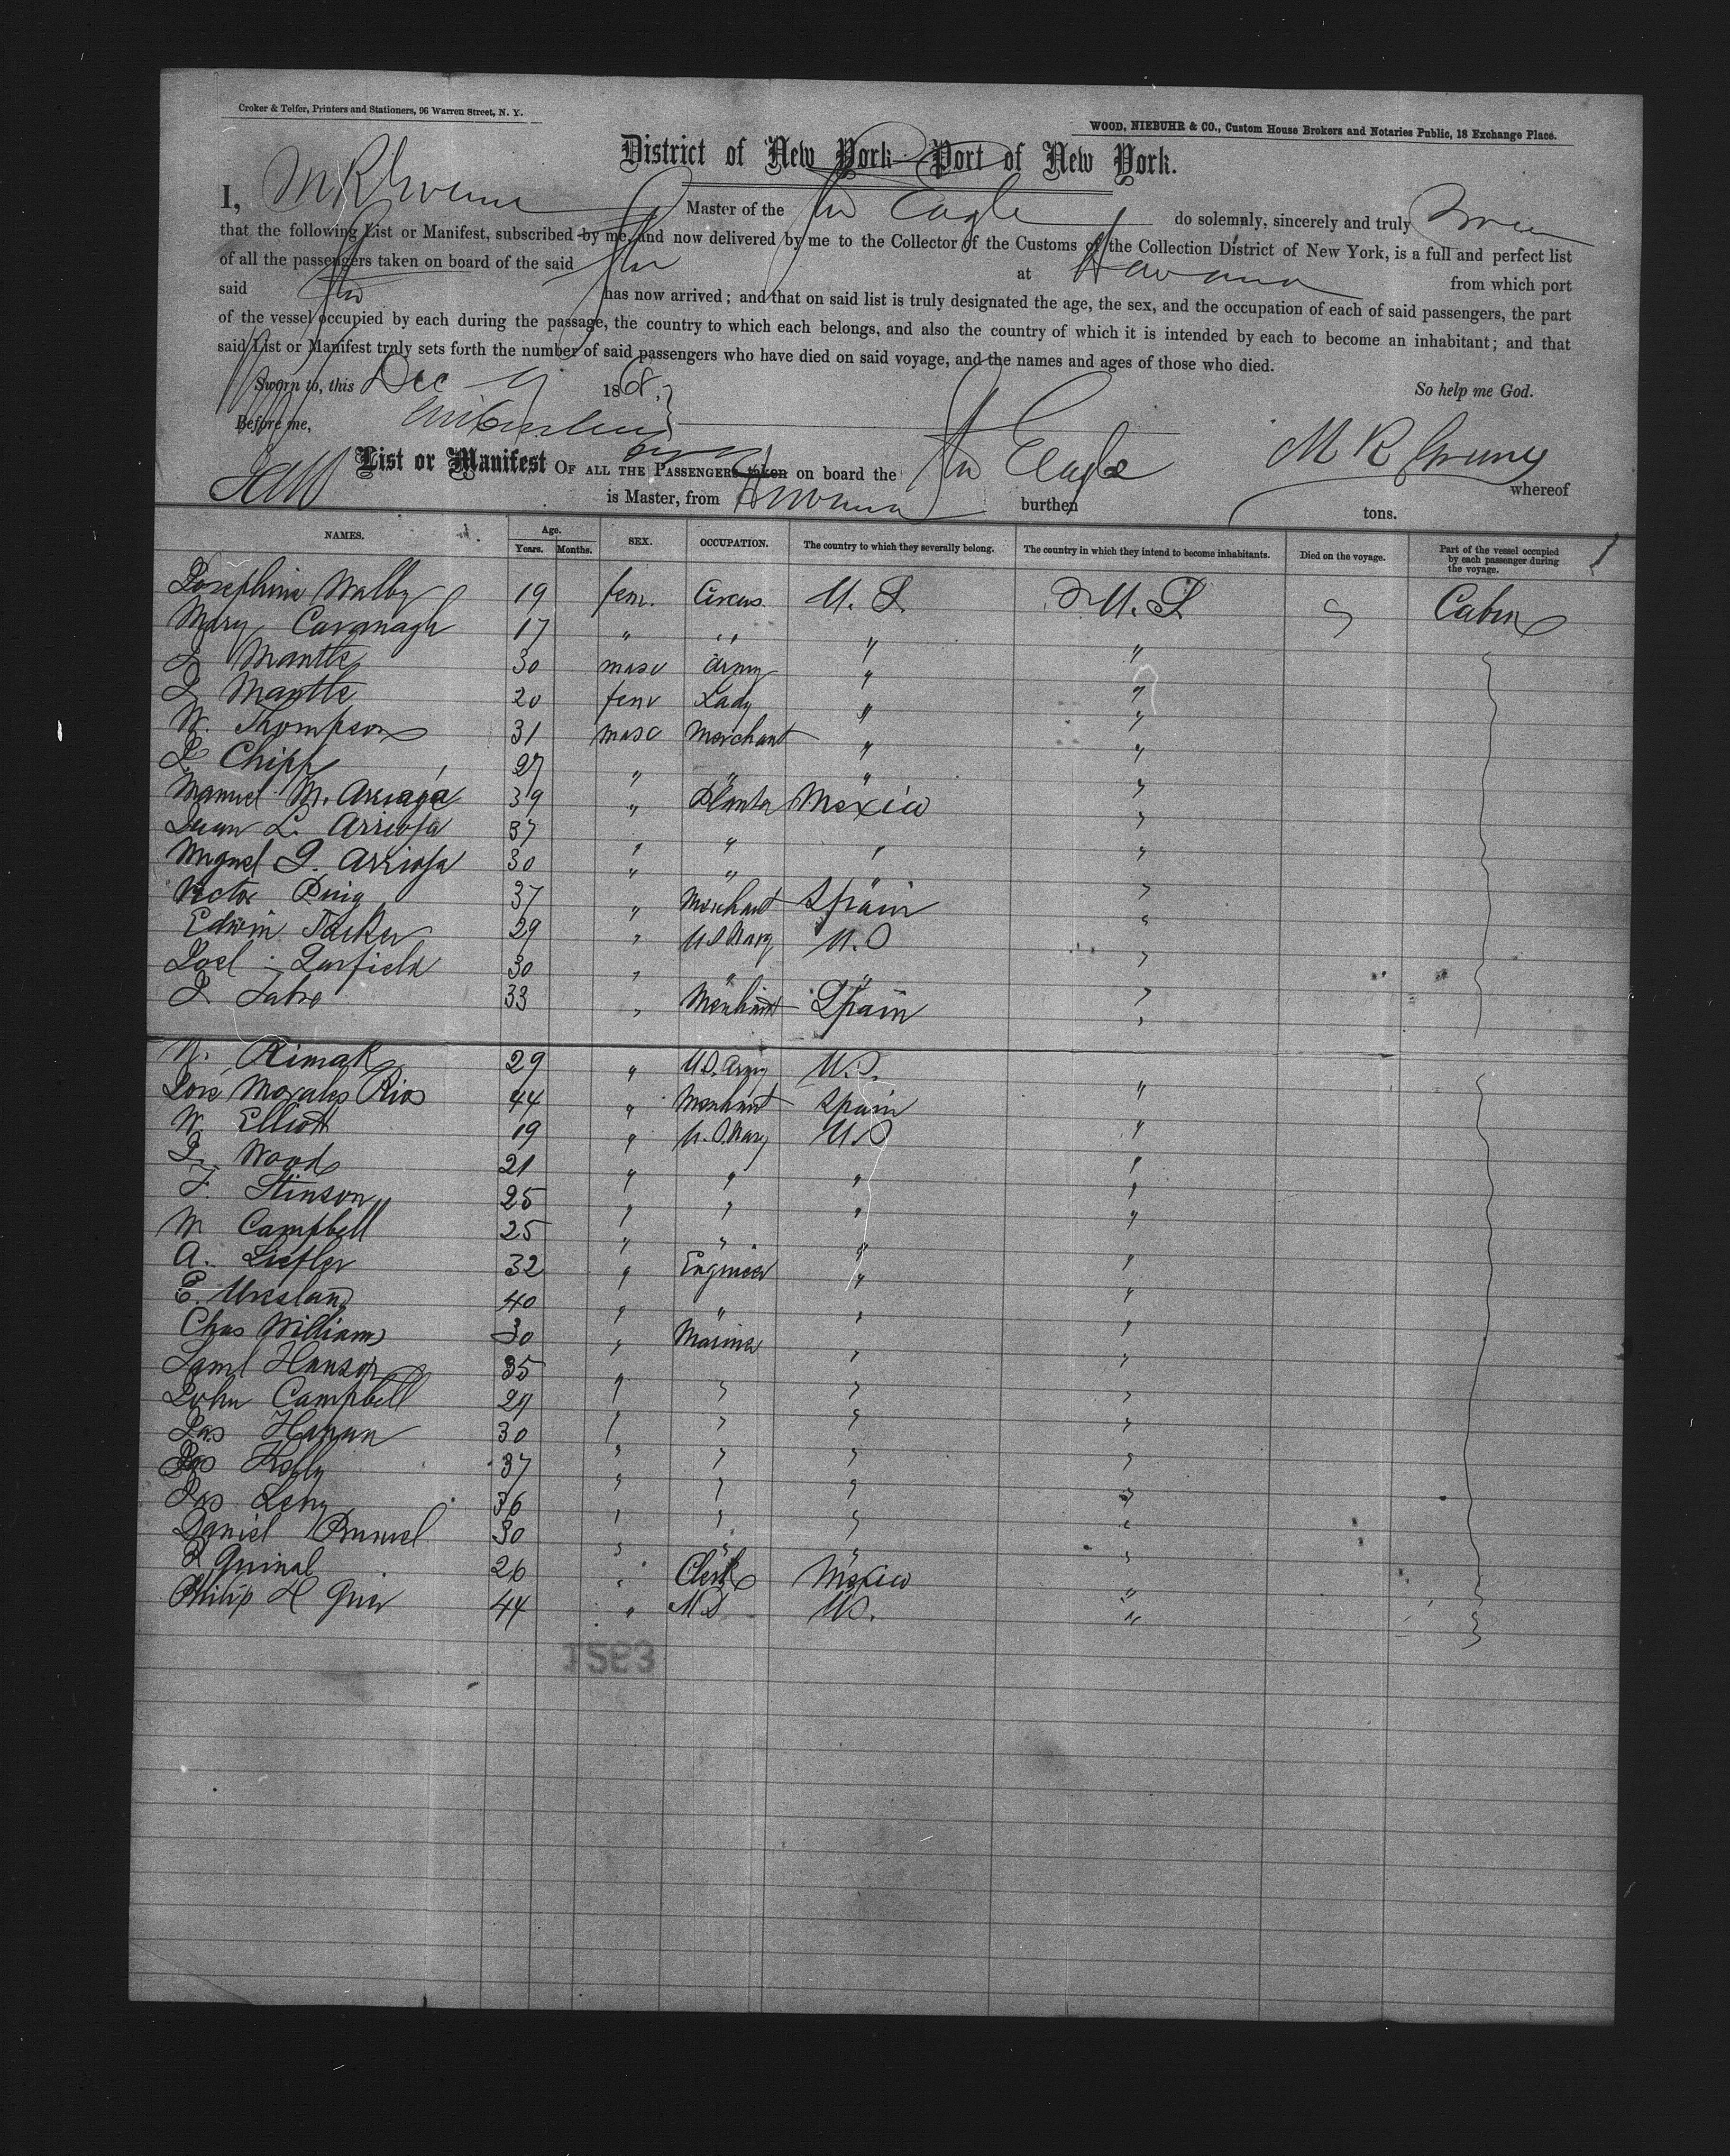 Croker & Telfer, Printers and Stationers, 96 Warren Street, N. Y.
WOOD, NIEBUHR & CO., Custom House Brokers and Notaries Public, 18 Exchange Place.
District of New York - Port of New York.
I, M R Greene Master of the Str Eagle do solemnly, sincerely and truly swear
that the following List or Manifest, subscribed by me, and now delivered by me to the Collector of the Customs of the Collection District of New York, is a full and perfect list
of all the passengers taken on board of the said Str at Havana from which port
said Str has now arrived; and that on said list is truly designated the age, the sex, and the occupation of each of said passengers, the part
of the vessel occupied by each during the passage, the country to which each belongs, and also the country of which it is intended by each to become an inhabitant; and that
said List or Manifest truly sets forth the number of said passengers who have died on said voyage, and the names and ages of those who died.
Sworn to, this Dec 9 1868. So help me God.
Before me, M R Greene
List or Manifest OF ALL THE PASSENGERS taken on board the Str Eagle whereof
is Master, from Havana burthen tons.
NAMES. Age. Years. Months. SEX. OCCUPATION. The country to which they severally belong. The country in which they intend to become inhabitants. Died on the voyage. Part of the vessel occupied by each passenger during the voyage.
Josephine Walby 19 fem. Circus. U. S. U. S Cabin
Mary Cavanagh 17 " " " "
J Mantle 30 masc Army " "
J Mantle 20 fem Lady " "
W. Thompson 31 masc Merchant " "
Chipp 27 " " " "
Manuel M. Arriaga 39 " Planter Mexico "
Juan L. Arrioja 37 " " " "
Miguel G. Arrioja 30 " " " "
Victor Puig 37 " Merchant Spain "
Edwin Parker 29 " U S Navy U. S "
Joel Garfield 30 " " " "
J. Fabre 33 " Merchant Spain "
W. Rimak 29 " U.S. Army U.S. "
José Morales Rios 44 " Merchant Spain "
W. Elliott 19 " U.S. Navy U S "
J. Wood 21 " " " "
F. Stinson 25 " " " "
M Campbell 25 " " " "
A. Liefler 32 " Engineer " "
E. 40 " " " "
Chas Williams 30 " Mariner " "
Saml Hanson 35 " " " "
John Campbell 29 " " " "
Jas Hanan 30 " " " "
Jas Kelly 37 " " " "
Jas Levy 36 " " " "
Daniel 30 " " " "
Guinal 26 " Clerk Mexico "
Philip H Grier 44 " M D US. "
1583